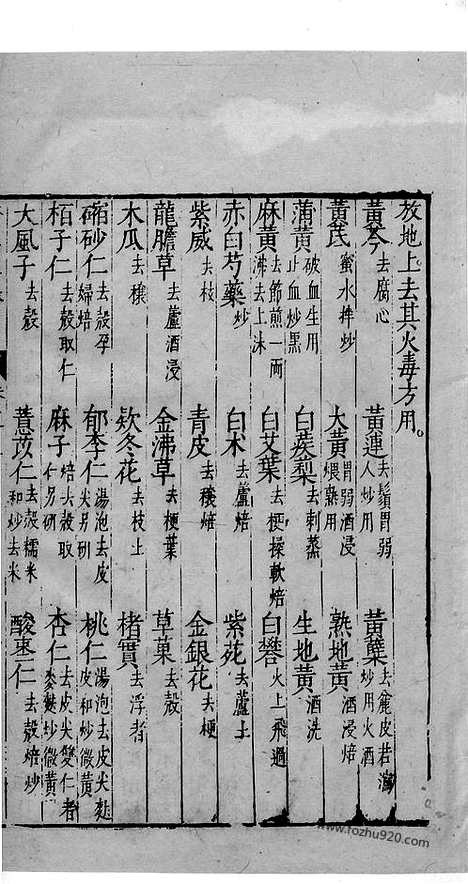 放地上。去其火毒方用。
黃芩去腐心 黃連去鬚胃弱人炒用 黃蘗去麄皮若瀉炒用火酒
黃茋蜜水拌炒 大黃胃弱酒浸煨熟用 熟地黃酒浸焙
蒲黃破血生用止血炒黑 白蒺梨去刺蒸 生地黃酒洗
麻黃去節煎一兩沸去上沫 白艾葉去梗揉軟焙 白礬火上飛過
赤白芍藥炒 白术去蘆焙 紫菀去蘆土
紫威去枝 青皮去穰焙 金銀花去梗
龍膽草去蘆酒浸 金沸草去梗葉 草菓去殼
木瓜去穰 欵冬花去枝土 楮實去浮者
砂仁去殼孕婦焙 郁李仁湯泡去皮尖另研 桃仁湯泡去皮尖麩皮和炒微黃
栢子仁去殼取仁 麻子仁焙去殼取另研 杏仁去皮尖雙仁者麥麩炒微黃
大風子去殼 薏苡仁去殼糯米和炒去米 酸棗仁去殼焙炒
www.fozhu920.com